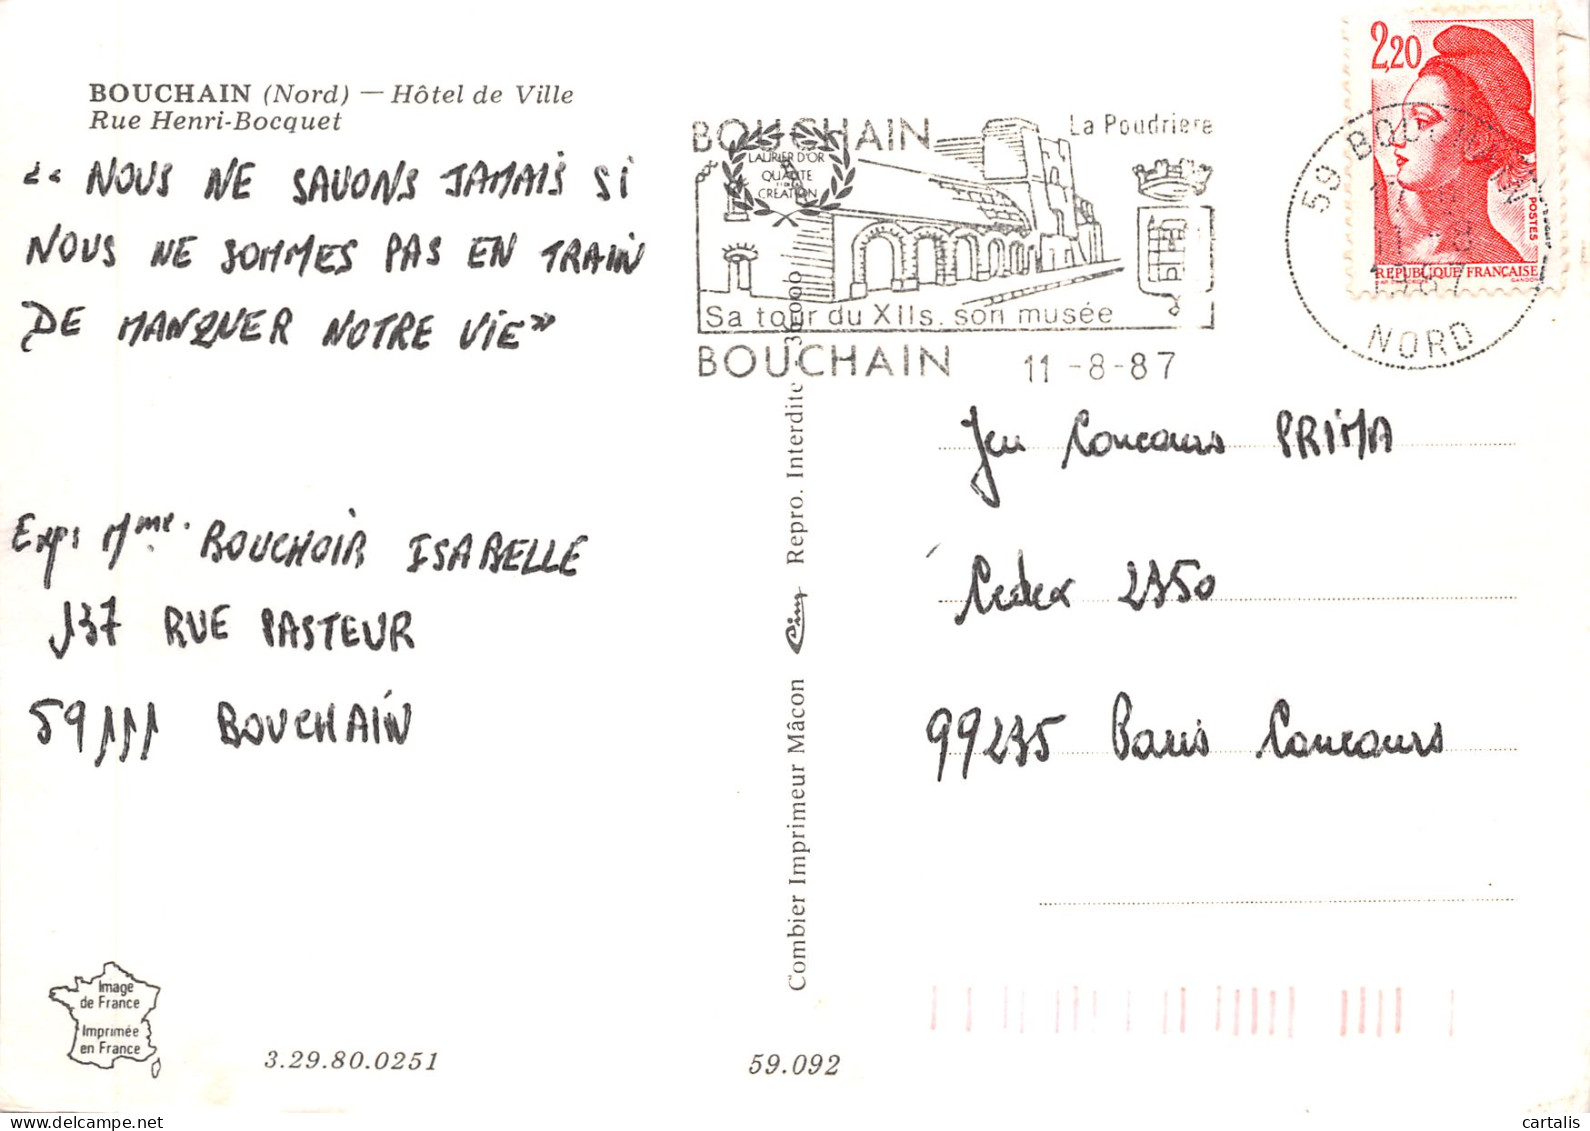 BOUCHAIN (Nord) — Hôtel de Ville
Rue Henri-Bocquet
« NOUS NE SAVONS JAMAIS SI
NOUS NE SOMMES PAS EN TRAIN
DE MANQUER NOTRE VIE»
Exp: Mme. BOUCHOIR ISABELLE
137 RUE PASTEUR
59111 BOUCHAIN
Image
de France
Imprimée
en France
3.29.80.0251
59.092
BOUCHAIN
La Poudriere
LAURIER D'OR
QUALITE
CREATION
Sa tour du XIIs. son musée
BOUCHAIN 11-8-87
2,20
POSTES
REPUBLIQUE FRANÇAISE
GANDON
59 BOUCHAIN
NORD
Combier Imprimeur Mâcon Cim Repro. Interdite
Jeu Concours PRIMA
Cedex 2350
99235 Paris Concours
cartalis